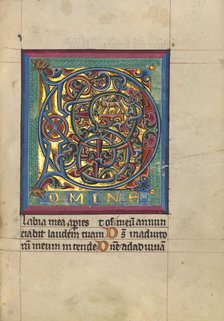 DOMINE
labia mea apies ⁊ os meū annun
ciabit laudem tuam D̄s in adiuto
riū meum in tende Dn̄e ad adiuuā